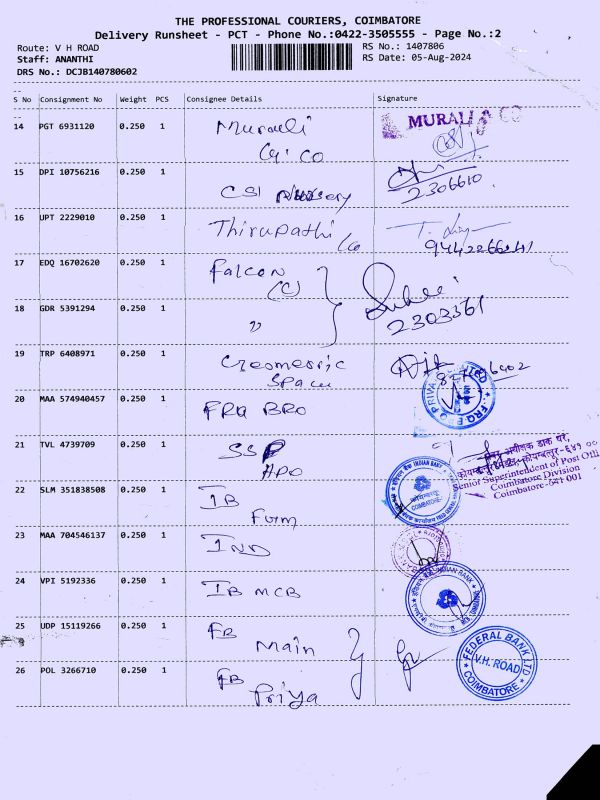 THE PROFESSIONAL COURIERS, COIMBATORE
Delivery Runsheet - PCT - Phone No.:0422-3505555 - Page No.:2
Route: V H ROAD
RS No.: 1407806
Staff: ANANTHI
RS Date: 05-Aug-2024
DRS No.: DCJB140780602
S No Consignment No Weight PCS Consignee Details Signature
14 PGT 6931120 0.250 1 Murali MURALI & CO
& CO
15 DPI 10756216 0.250 1 CSI
2306610
16 UPT 2229010 0.250 1 Thirupathi
& Co
17 EDQ 16702620 0.250 1 Falcon
(C)
18 GDR 5391294 0.250 1 "
2303361
19 TRP 6408971 0.250 1
Space
20 MAA 574940457 0.250 1 FRG BRO
21 TVL 4739709 0.250 1 SSP
APO
Senior Superintendent of Post Offi
Coimbatore Division
Coimbatore-641 001
22 SLM 351838508 0.250 1 IB INDIAN BANK
Form COIMBATORE
23 MAA 704546137 0.250 1 IND
24 VPI 5192336 0.250 1 IB MCB INDIAN BANK
25 UDP 15119266 0.250 1 FB Main
26 POL 3266710 0.250 1 FB Priya
FEDERAL BANK LTD
V.H. ROAD
COIMBATORE